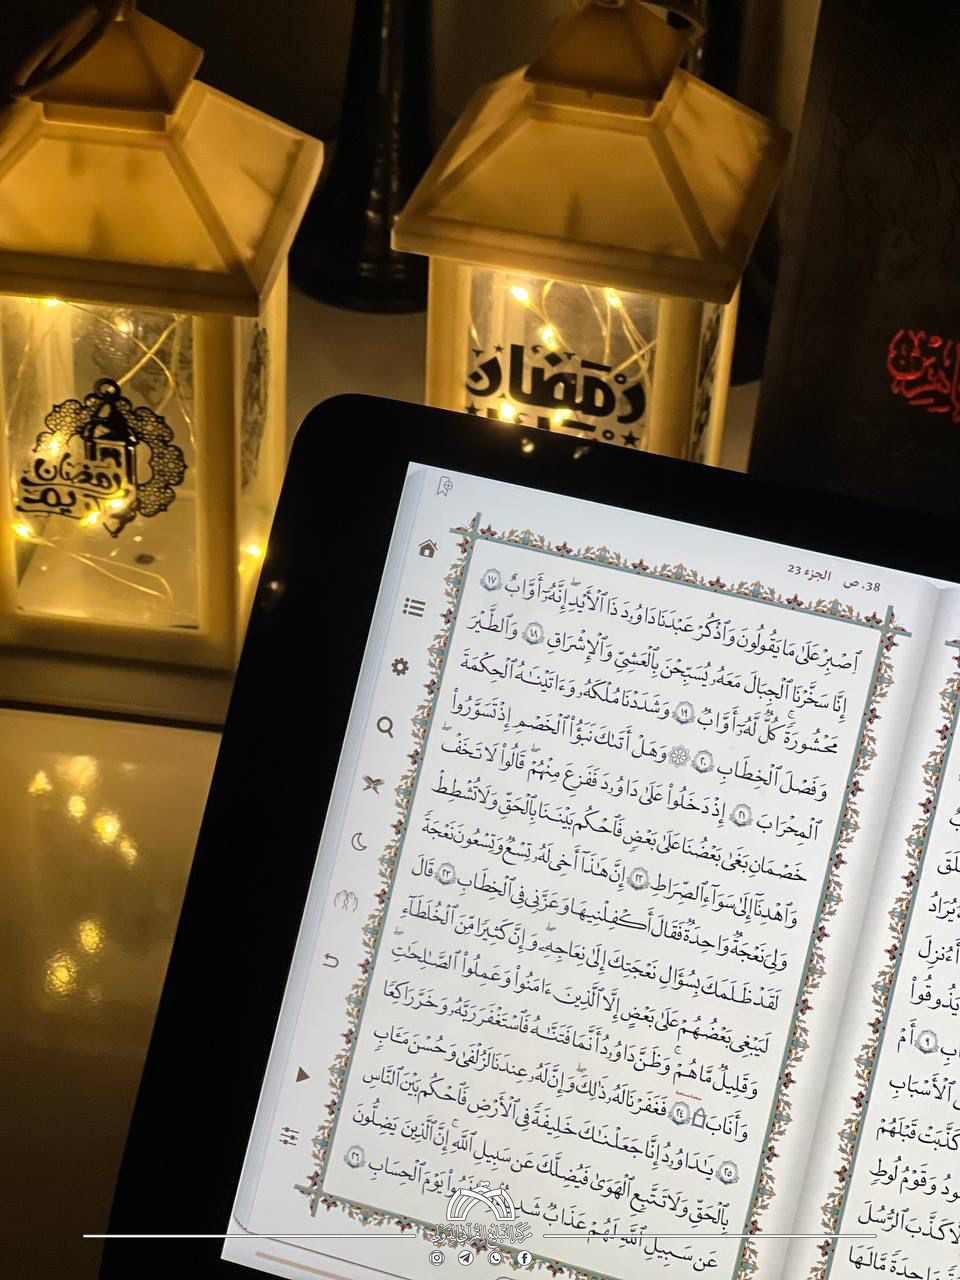 رمضان
كريم
رمضان
38. ص الجزء 23
ٱصْبِرْ عَلَىٰ مَا يَقُولُونَ وَٱذْكُرْ عَبْدَنَا دَاوُۥدَ ذَا ٱلْأَيْدِ ۖ إِنَّهُۥٓ أَوَّابٌ ١٧
إِنَّا سَخَّرْنَا ٱلْجِبَالَ مَعَهُۥ يُسَبِّحْنَ بِٱلْعَشِىِّ وَٱلْإِشْرَاقِ ١٨ وَٱلطَّيْرَ
مَحْشُورَةً ۖ كُلٌّ لَّهُۥٓ أَوَّابٌ ١٩ وَشَدَدْنَا مُلْكَهُۥ وَءَاتَيْنَـٰهُ ٱلْحِكْمَةَ
وَفَصْلَ ٱلْخِطَابِ ٢٠ ۞ وَهَلْ أَتَىٰكَ نَبَؤُا۟ ٱلْخَصْمِ إِذْ تَسَوَّرُوا۟
ٱلْمِحْرَابَ ٢١ إِذْ دَخَلُوا۟ عَلَىٰ دَاوُۥدَ فَفَزِعَ مِنْهُمْ ۖ قَالُوا۟ لَا تَخَفْ ۖ
خَصْمَانِ بَغَىٰ بَعْضُنَا عَلَىٰ بَعْضٍ فَٱحْكُم بَيْنَنَا بِٱلْحَقِّ وَلَا تُشْطِطْ
وَٱهْدِنَآ إِلَىٰ سَوَآءِ ٱلصِّرَٰطِ ٢٢ إِنَّ هَـٰذَآ أَخِى لَهُۥ تِسْعٌ وَتِسْعُونَ نَعْجَةً
وَلِىَ نَعْجَةٌ وَٰحِدَةٌ فَقَالَ أَكْفِلْنِيهَا وَعَزَّنِى فِى ٱلْخِطَابِ ٢٣ قَالَ
لَقَدْ ظَلَمَكَ بِسُؤَالِ نَعْجَتِكَ إِلَىٰ نِعَاجِهِۦ ۖ وَإِنَّ كَثِيرًا مِّنَ ٱلْخُلَطَآءِ
لَيَبْغِى بَعْضُهُمْ عَلَىٰ بَعْضٍ إِلَّا ٱلَّذِينَ ءَامَنُوا۟ وَعَمِلُوا۟ ٱلصَّـٰلِحَـٰتِ
وَقَلِيلٌ مَّا هُمْ ۗ وَظَنَّ دَاوُۥدُ أَنَّمَا فَتَنَّـٰهُ فَٱسْتَغْفَرَ رَبَّهُۥ وَخَرَّ رَاكِعًا
وَأَنَابَ ۩ ٢٤ فَغَفَرْنَا لَهُۥ ذَٰلِكَ ۖ وَإِنَّ لَهُۥ عِندَنَا لَزُلْفَىٰ وَحُسْنَ مَـَٔابٍ
٢٥ يَـٰدَاوُۥدُ إِنَّا جَعَلْنَـٰكَ خَلِيفَةً فِى ٱلْأَرْضِ فَٱحْكُم بَيْنَ ٱلنَّاسِ
بِٱلْحَقِّ وَلَا تَتَّبِعِ ٱلْهَوَىٰ فَيُضِلَّكَ عَن سَبِيلِ ٱللَّهِ ۚ إِنَّ ٱلَّذِينَ يَضِلُّونَ
عَن سَبِيلِ ٱللَّهِ لَهُمْ عَذَابٌ يَوْمَ ٱلْحِسَابِ ٢٦
يُرَادُ
أَءُنزِلَ
يَذُوقُوا۟
٩ أَمْ
ٱلْأَسْبَـٰبِ
كَذَّبَتْ قَبْلَهُمْ
وَقَوْمُ لُوطٍ
كَذَّبَ ٱلرُّسُلَ
مَّا لَهَا
مركز التبليغ القرآني الدولي